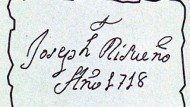 F
Joseph Risueño
Año 1718